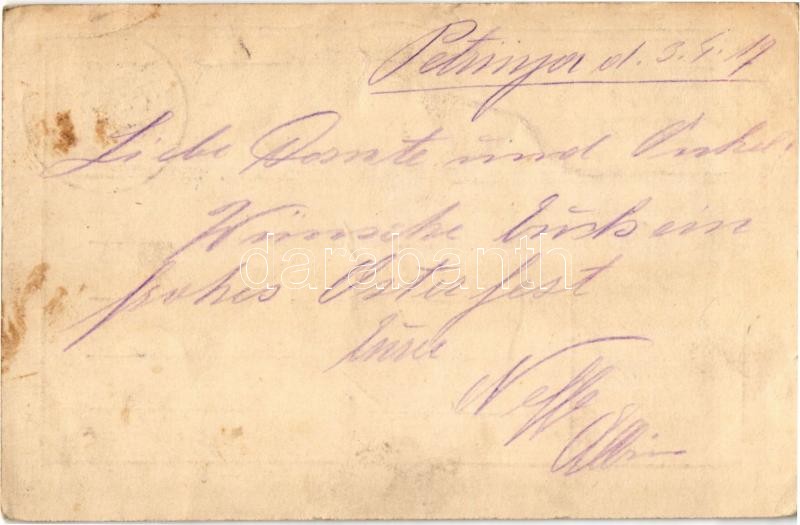 Petrinja d. 3.4.17
Liebe Tante und Onkel.
Wünsche Euch ein
frohes Osterfest
Euer
Neffe
Albin
darabanth